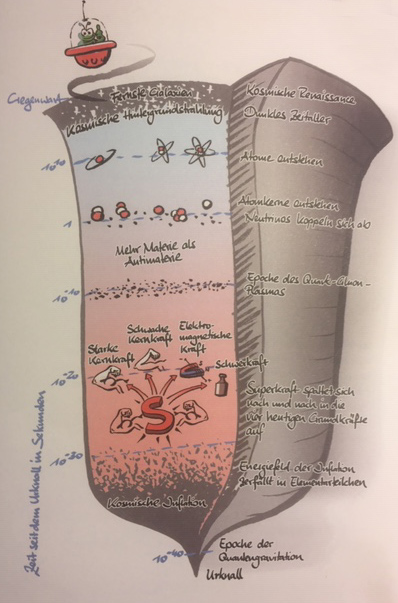 Gegenwart
Fernste Galaxien
Kosmische Hintergrundstrahlung
Kosmische Renaissance
Dunkles Zeitalter
10¹⁰
Atome entstehen
1
Atomkerne entstehen
Neutrinos koppeln sich ab
Mehr Materie als
Antimaterie
10⁻¹⁰
Epoche des Quark-Gluon-
Plasmas
Starke
Kernkraft
Schwache
Kernkraft
Elektro-
magnetische
Kraft
Schwerkraft
10⁻²⁰
S
Superkraft spaltet sich
nach und nach in die
vier heutigen Grundkräfte
auf
10⁻³⁰
Energiefeld der Inflation
zerfällt in Elementarteilchen
Kosmische Inflation
10⁻⁴⁰
Epoche der
Quantengravitation
Urknall
Zeit seit dem Urknall in Sekunden